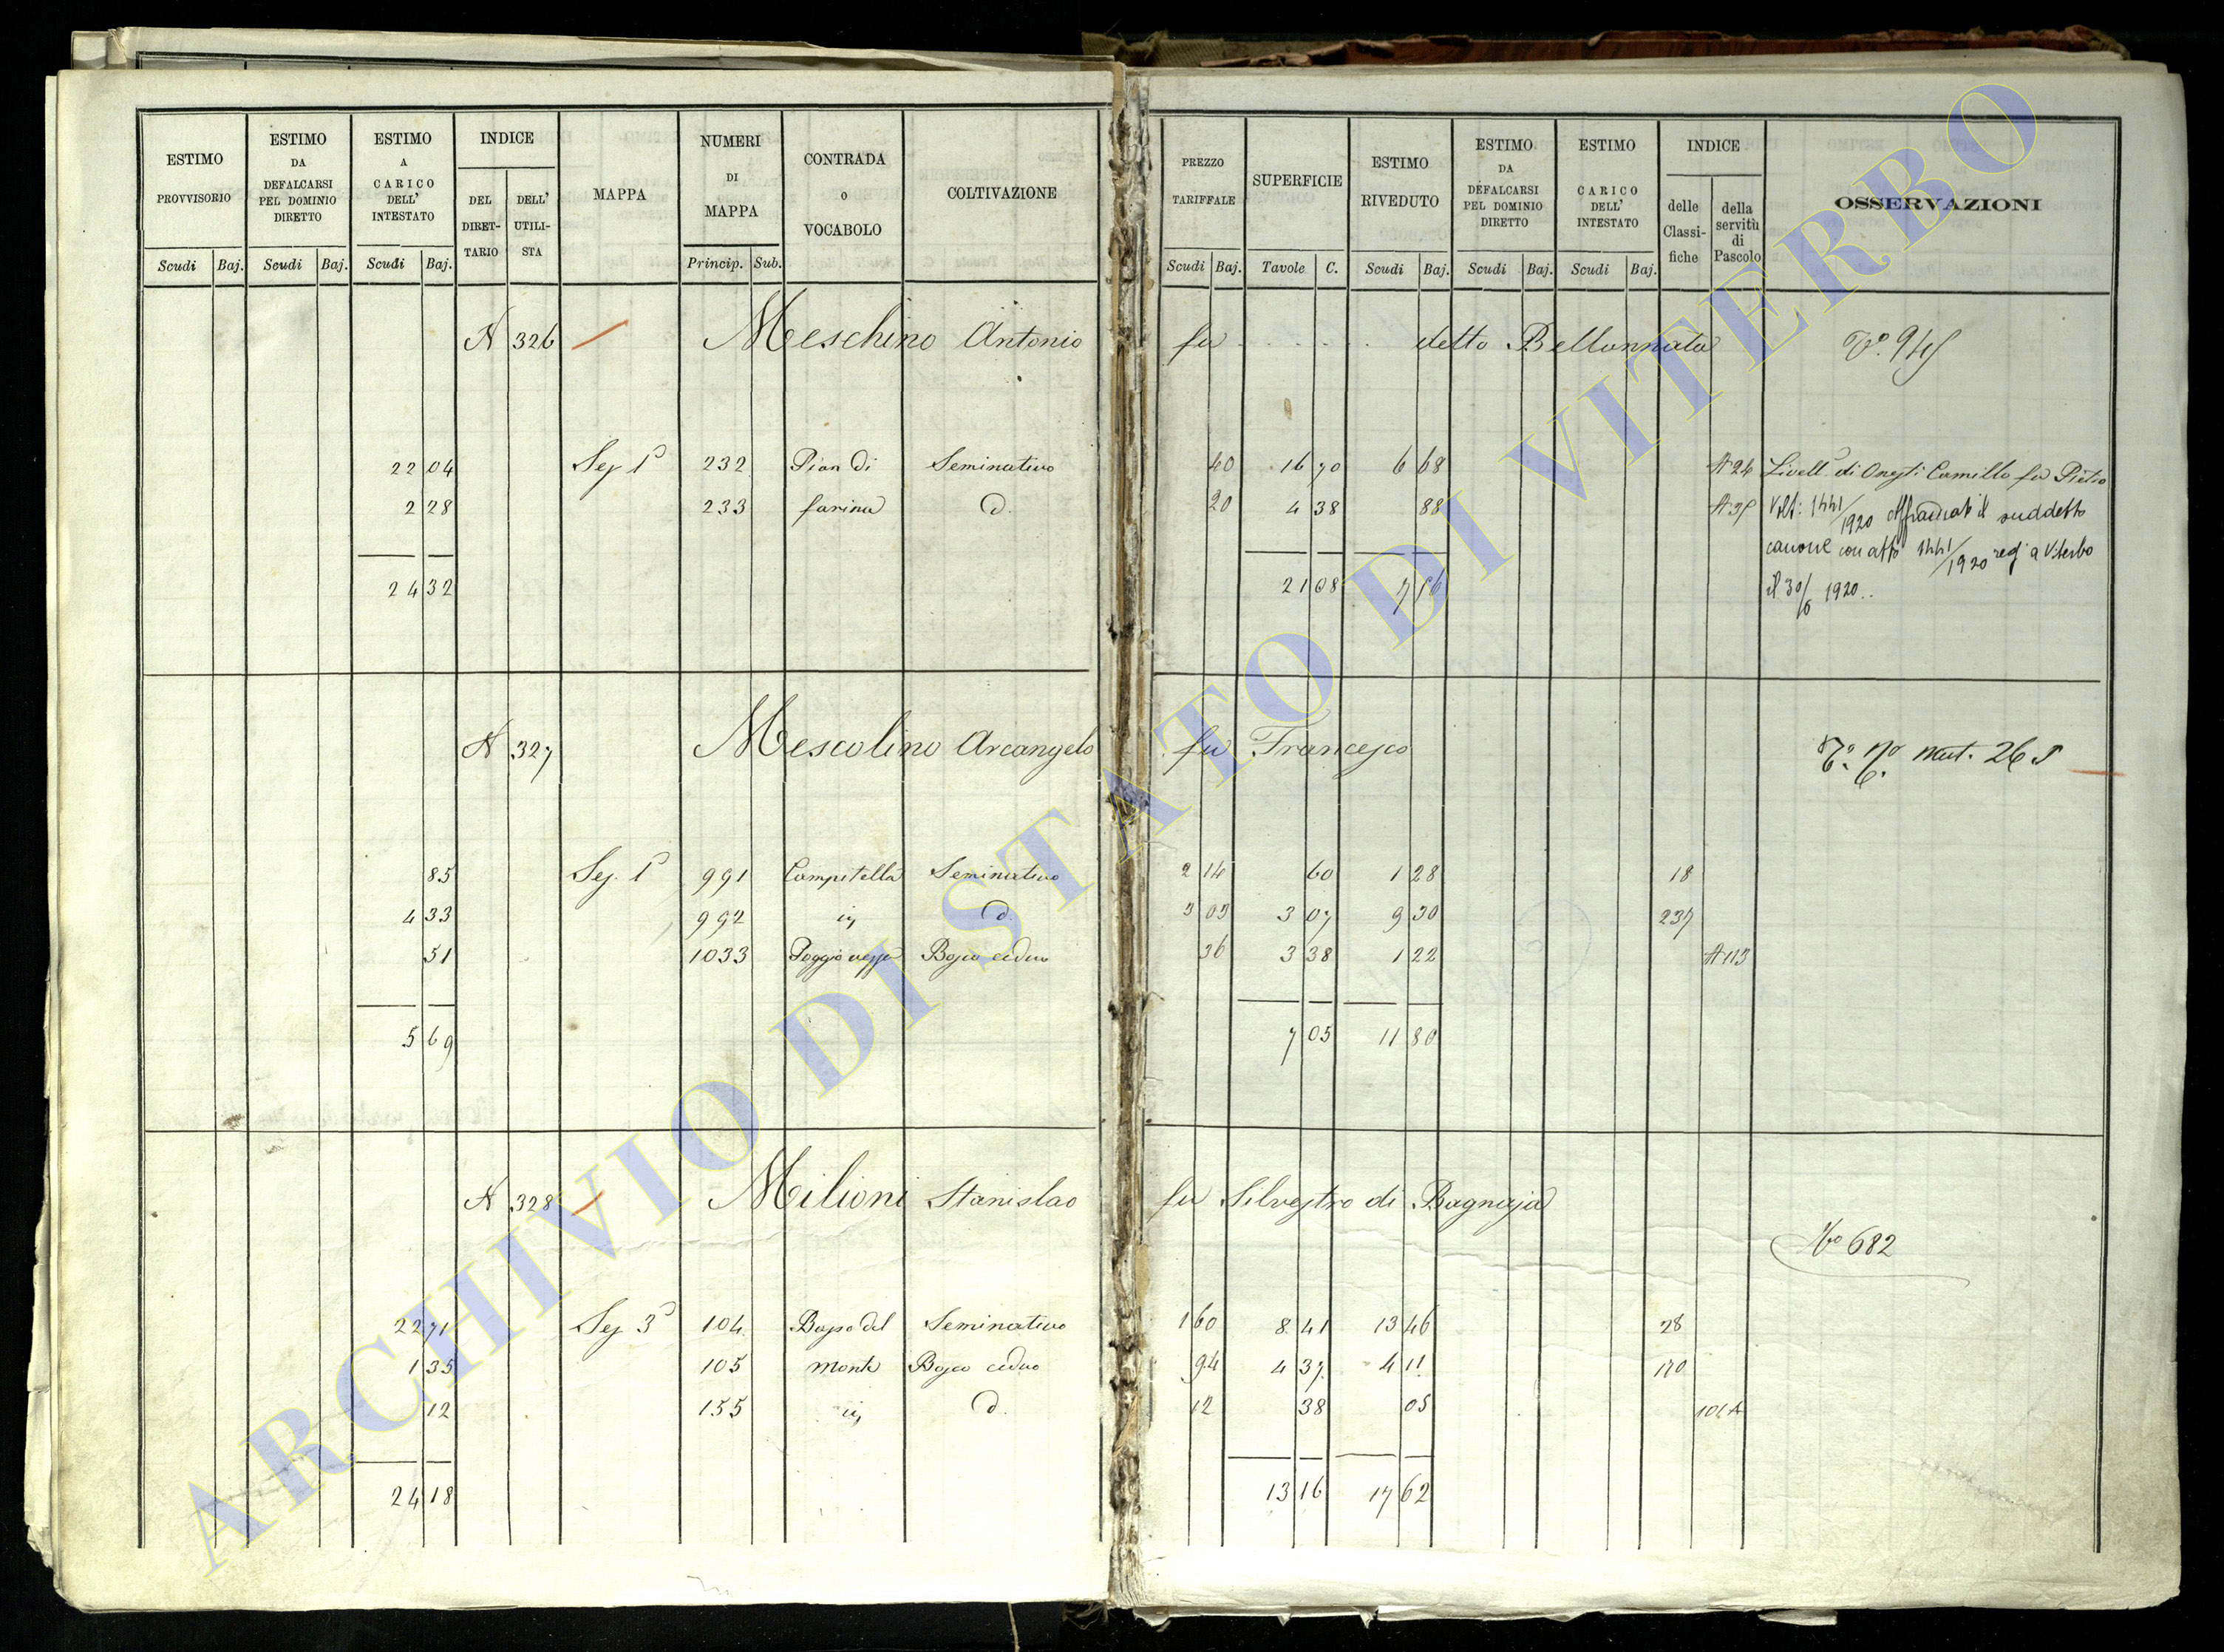 ESTIMO PROVVISORIO
ESTIMO DA DEFALCARSI PEL DOMINIO DIRETTO
ESTIMO A CARICO DELL' INTESTATO
INDICE
DEL DIRET-TARIO
DELL' UTILI-STA
MAPPA
NUMERI DI MAPPA
CONTRADA o VOCABOLO
COLTIVAZIONE
PREZZO TARIFFALE
SUPERFICIE
ESTIMO RIVEDUTO
ESTIMO DA DEFALCARSI PEL DOMINIO DIRETTO
ESTIMO CARICO DELL' INTESTATO
INDICE
delle Classi-fiche
della servitù di Pascolo
OSSERVAZIONI
Scudi Baj. Scudi Baj. Scudi Baj. Princip. Sub. Scudi Baj. Tavole C. Scudi Baj. Scudi Baj. Scudi Baj.
N 326 Meschino Antonio fu . . . . . . detto Bellonnato
22 04 Sez 1ª 232 Pian di Seminativo 40 16 70 6 68 A 24 Livell. di Onesti Camillo fu Pietro
2 28 233 farina d. 20 4 38 88 Volt: 1441/1920 Affrancato il suddetto
canone con atto 1441/1920 reg a Viterbo
24 32 21 08 7 56 il 30/6 1920..
N 327 Mescolino Arcangelo fu Francesco mut. 265
85 Sez. 1ª 991 Campitella Seminativo 2 14 60 1 28 18
4 33 992 id. d. 3 03 3 07 9 30 237
51 1033 Poggio Bosco ceduo 36 3 38 1 22 A 113
5 69 7 05 11 80
N 328 Milioni Stanislao fu Silvestro di Bagnaja
No 682
22 71 Sez 3ª 104 Bosco del Seminativo 1 60 8 41 13 46 28
1 35 105 monte Bosco ceduo 94 4 37 4 11 170
12 155 id. d. 12 38 05
24 18 13 16 17 62
ARCHIVIO DI STATO DI VITERBO